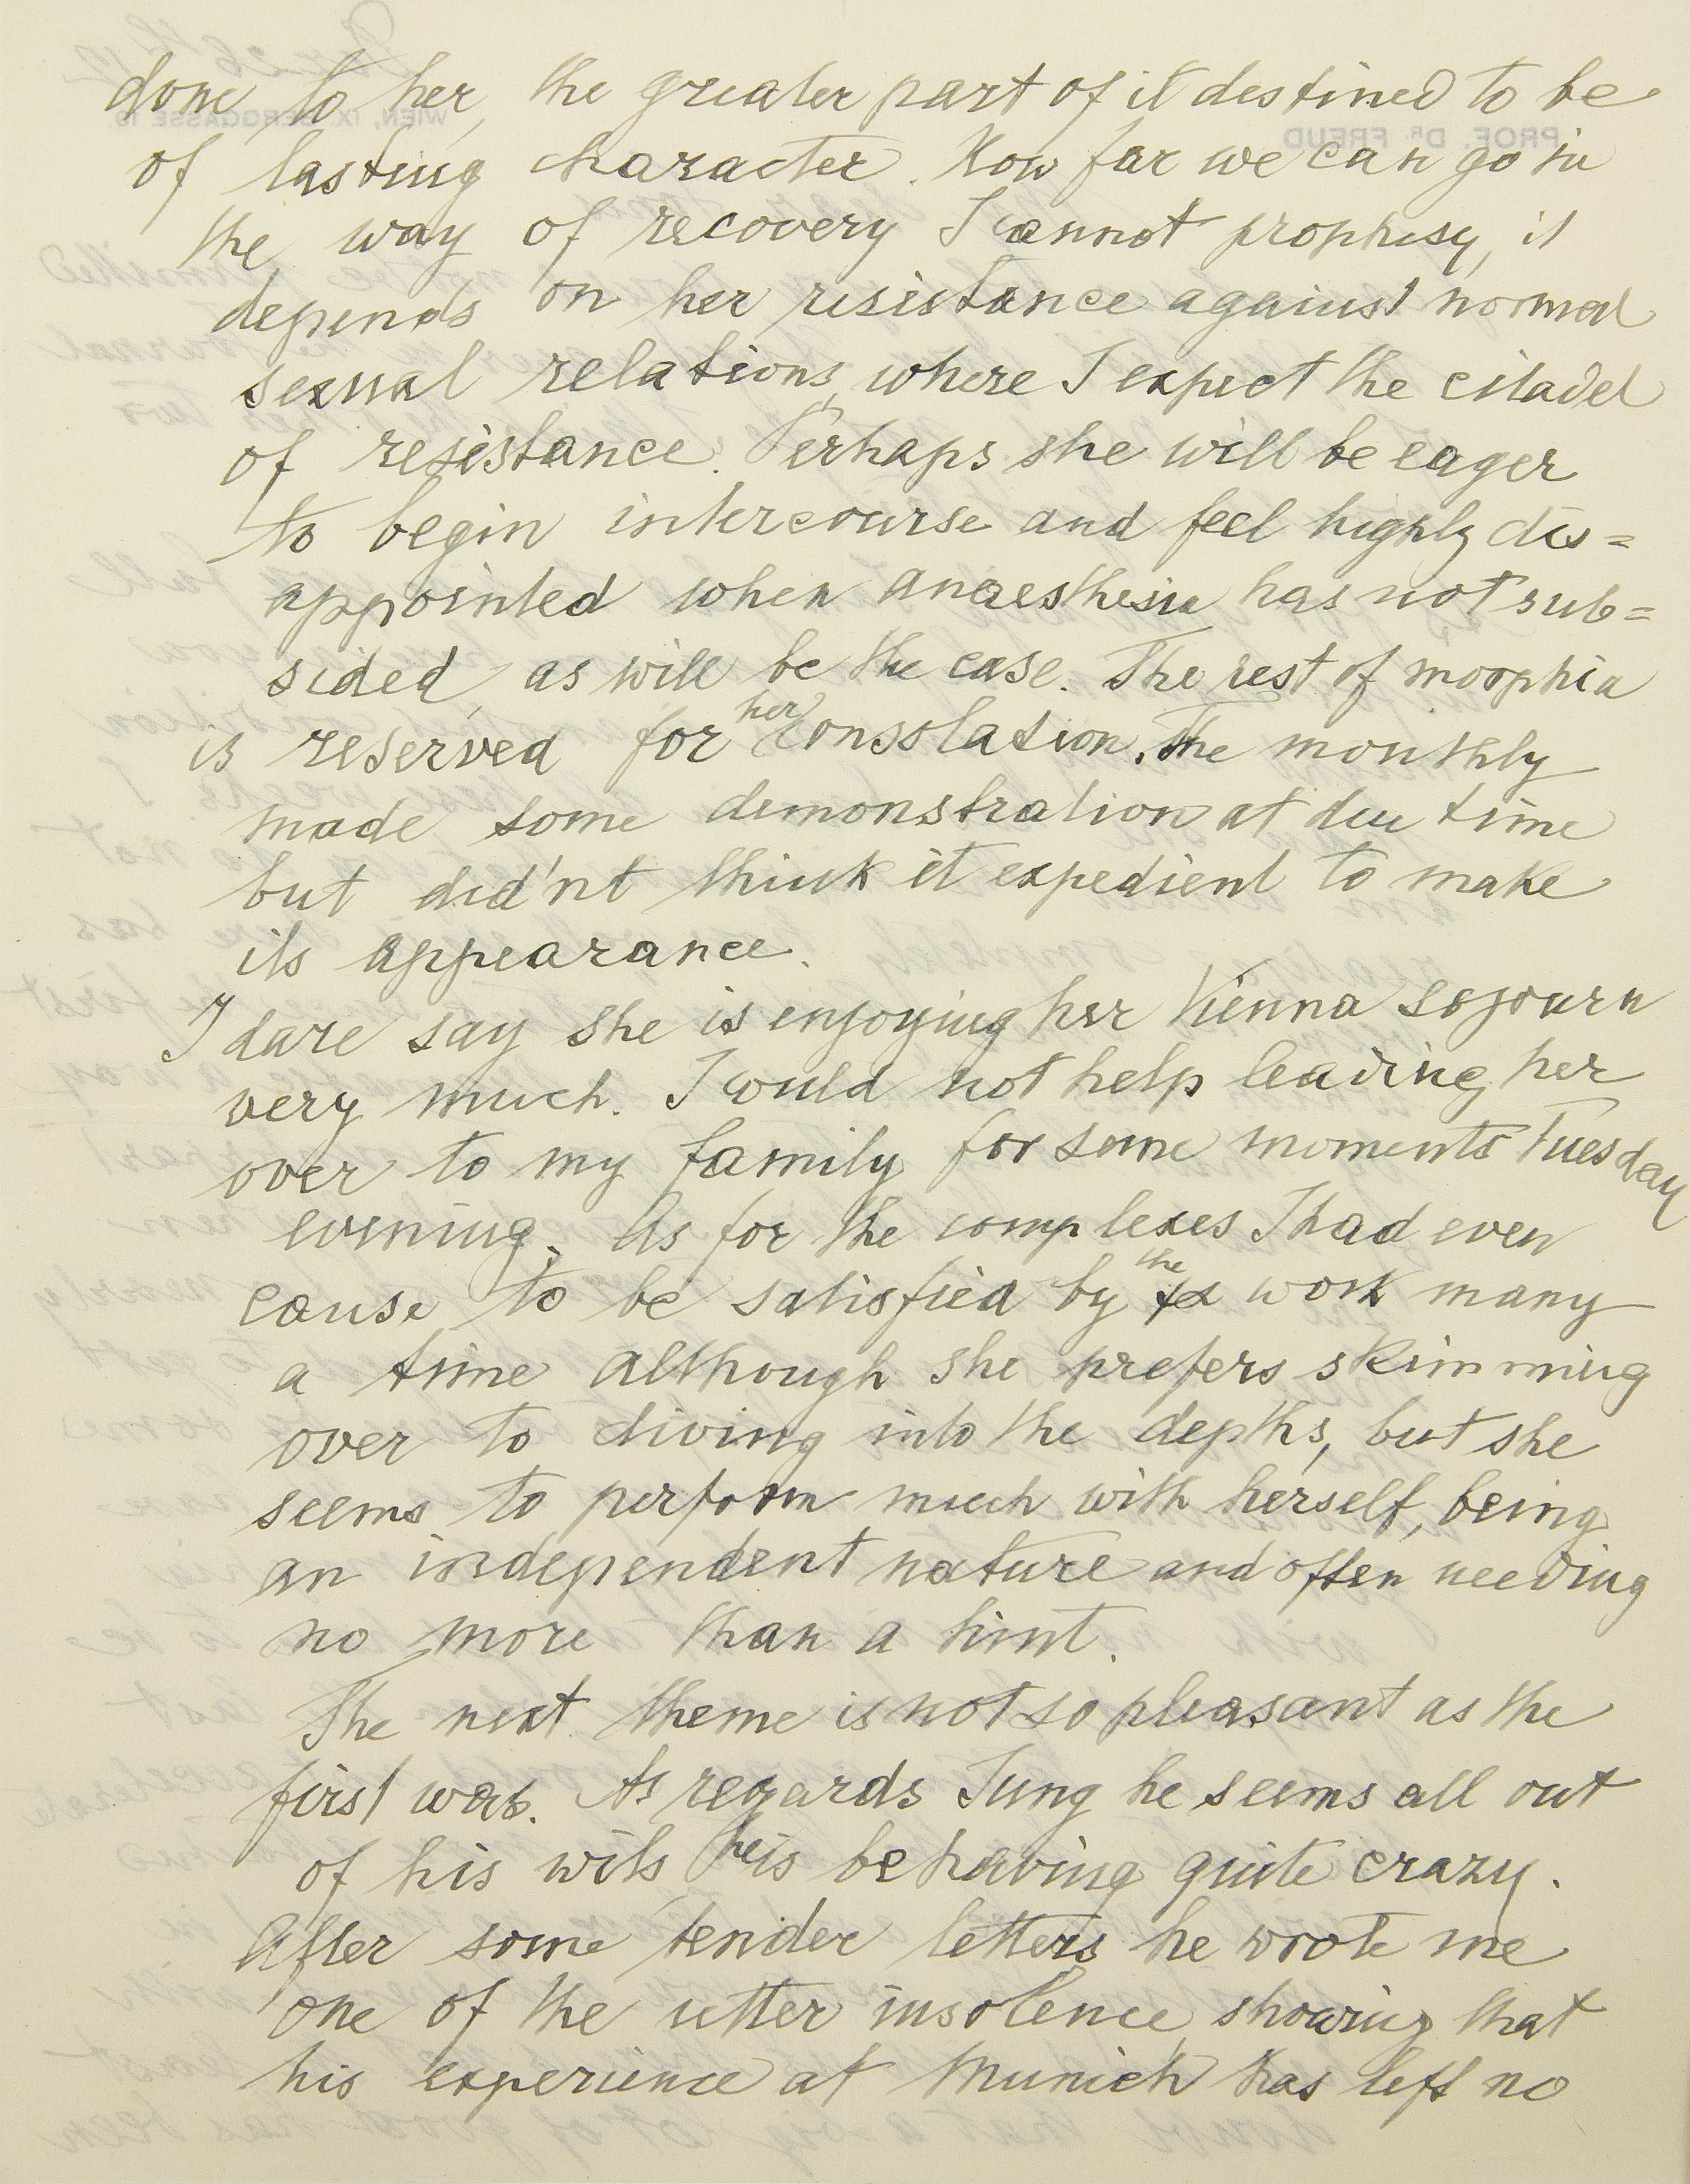 done to her, the greater part of it destined to be
of lasting character. How far we can go in
the way of recovery I cannot prophesy, it
depends on her resistance against normal
sexual relations, where I expect the citadel
of resistance. Perhaps she will be eager
to begin intercourse and feel highly dis=
appointed when anaesthesia has not sub=
sided, as will be the case. The rest of morphia
is reserved for her consolation. The monthly
made some demonstration at due time
but did'nt think it expedient to make
its appearance.
I dare say she is enjoying her Vienna sojourn
very much. I could not help leading her
over to my family for some moments Tuesday
evening. As for the complexes I had even
cause to be satisfied by the work many
a time although she prefers skimming
over to diving into the depths, but she
seems to perform much with herself, being
an independent nature and often needing
no more than a hint.
The next theme is not so pleasant as the
first was. As regards Jung he seems all out
of his wits he is behaving quite crazy.
After some tender letters he wrote me
one of the utter insolence, showing that
his experience at Munich has left no
PROF. DR FREUD
WIEN, IX. BERGGASSE 19